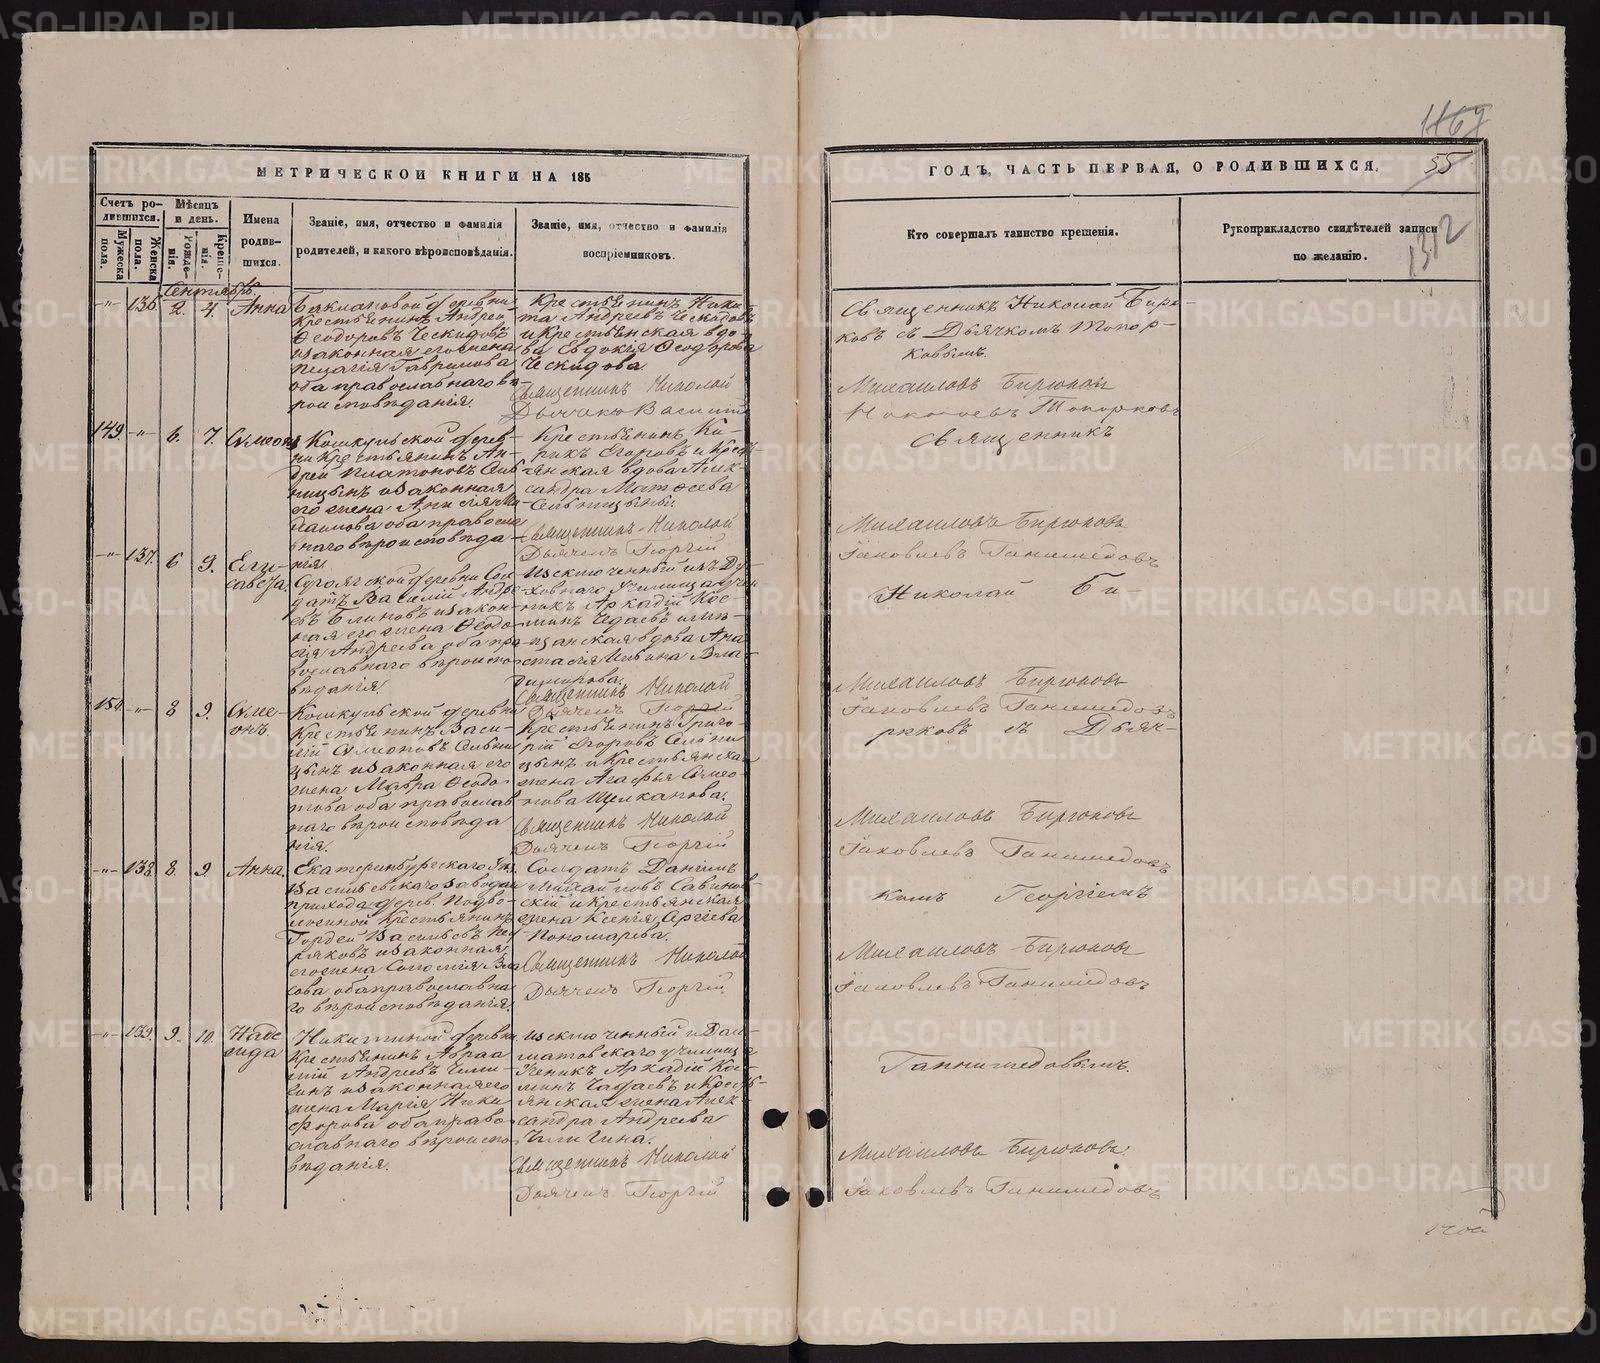 МЕТРИЧЕСКОЙ КНИГИ НА 185
Счетъ ро-
дившихся.
Мѣсяцъ
и день.
Имена
родив-
шихся.
Званіе, имя, отчество и фамилія
родителей, и какого вѣроисповѣданія.
Званіе, имя, отчество и фамилія
воспріемниковъ.
Мужеска
пола.
Женска
пола.
Рожде-
нія.
Креще-
нія.
Сентябрь
136. 2. 4. Анна
Баклановой деревни
крестьянинъ Андрей
Ѳеодоровъ Ческидовъ
и законная его жена
Пелагія Гаврилова
оба православнаго вѣ-
роисповѣданія.
Крестьянинъ Ники-
та Андреевъ Ческидовъ
и крестьянская вдо-
ва Евдокія Ѳеодорова
Ческидова
Священникъ Николай
Дьячекъ Василій
149. 6. 7. Симеонъ
Кошкульской дерев-
ни крестьянинъ Ан-
дрей Платоновъ
и законная
его жена
оба правосла-
внаго вѣроисповѣда-
нія.
Крестьянинъ Ки-
рикъ Егоровъ и крест-
янская вдова Алек-
сандра Матѳеева
Священникъ Николай
Дьячекъ Георгій
137. 6 9. Ели-
савета.
деревни Сол-
датъ Василій Андре-
евъ Блиновъ и закон-
ная его жена Ѳеодо-
сія Андреева оба пра-
вославнаго вѣроиспо-
вѣданія.
Изключенный изъ Ду-
ховнаго Училища уче-
никъ Аркадій Кос-
минъ
вдова Ана-
стасія Ильина Вла-
димирова.
Священникъ Николай
Дьячекъ Георгій
150. 8 9. Симе-
онъ.
Кошкульской деревни
Крестьянинъ Васи-
лій Симеоновъ
и законная его
жена Мавра Ѳеодо-
това оба православ-
наго вѣроисповѣда
нія.
Крестьянинъ Григо-
рій Егоровъ
и крестьянская
жена Агафья Симео-
нова Щелканова.
Священникъ Николай
Дьячекъ Георгій
138. 8. 9. Анна.
Екатеринбургскаго
Васильевскаго завода
прихода дерев. Подво-
лошной крестьянинъ
Гордей Васильевъ
и законная
его жена
оба православна-
го вѣроисповѣданія.
Солдатъ Даніилъ
Михайловъ Савинов-
скій и крестьянская
жена Ксенія
Пономарева.
Священникъ Николай
Дьячекъ Георгій
139. 9. 10. Наде-
жда
Никитиной деревни
крестьянинъ Авраа-
мій Андреевъ Чили-
гинъ и законная его
жена Марія Ники-
форова оба право-
славнаго вѣроиспо-
вѣданія.
Изключенный Дал-
матовскаго училища
Ученикъ Аркадій Кос-
минъ и кресть-
янская жена Алек-
сандра Андреева
Чилигина.
Священникъ Николай
Дьячекъ Георгій
1169
55
1312
ГОДЪ, ЧАСТЬ ПЕРВАЯ, О РОДИВШИХСЯ.
Кто совершалъ таинство крещенія.
Рукоприкладство свидѣтелей записи
по желанію.
Священникъ Николай Бирю-
ковъ съ Дьячкомъ Топор-
ковымъ.
Михаиловъ Бирюковъ
Топорковъ
Священникъ
Михаиловъ Бирюковъ
Іаковлевъ Ганимедовъ
Николай Би-
Михаиловъ Бирюковъ
Іаковлевъ Ганимедовъ
рюковъ съ Дьяч-
Михаиловъ Бирюковъ
Іаковлевъ Ганимедовъ
комъ Георгіемъ
Михаиловъ Бирюковъ
Іаковлевъ Ганимедовъ
Ганимедовымъ.
Михаиловъ Бирюковъ
Іаковлевъ Ганимедовъ
METRIKI.GASO-URAL.RU